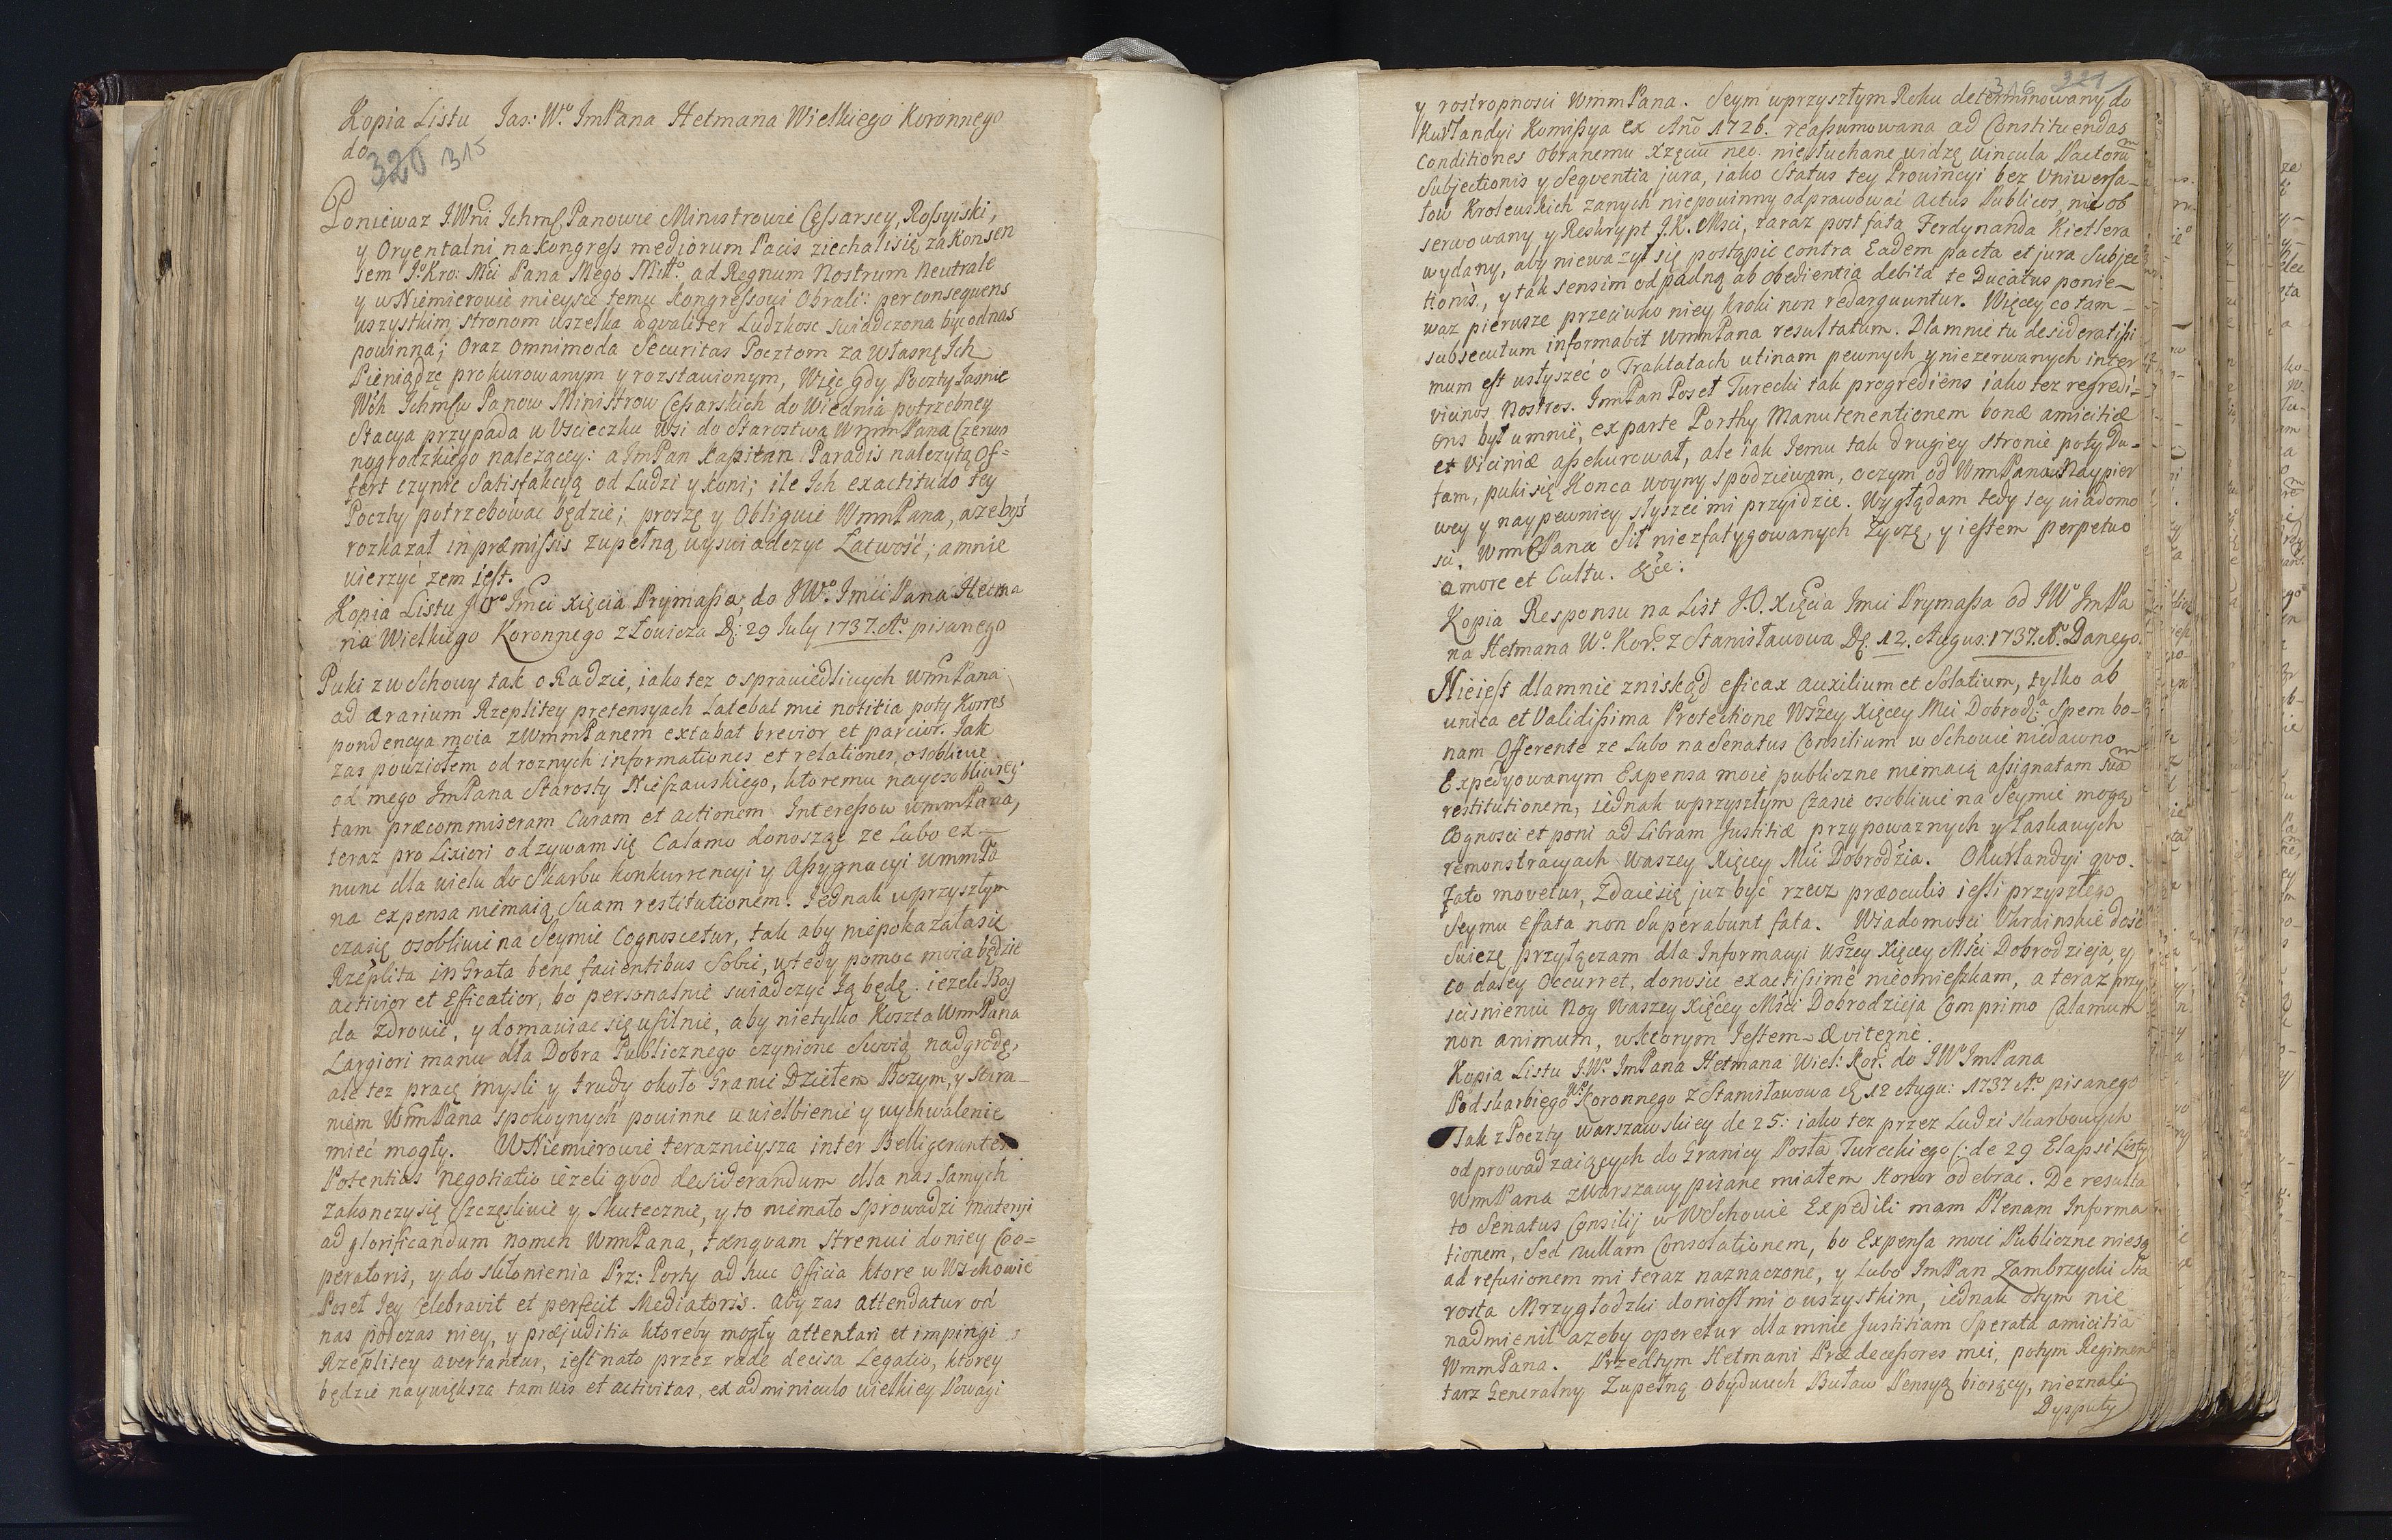 Kopia Listu Jas: Wo. ImPana Hetmana Wielkiego Koronnego
do
320 315
Poniewaz J.Wni Ichmsc Panowie Ministrowie Cessarscy, Rossyiski,
y Oryentalni na kongress mediorum Pacis ziechali się, za Konsen
sem Jo: Kro: Mci Pana Mego Miło. ad Regnum Nostrum Neutrale
y w Niemierowie mieysce temu kongressowi Obrali: per consequens
wszystkim stronom wszelka æqualiter Ludzkosc swiadczona byc od nas
powinna; Oraz omnimoda Securitas Pocztom za własnę Ich
Pieniądze prokurowanym y rozstawionym, Więc gdy Poczty Jasnie
Wch Ichmsw Panow Ministrow Cessarskich do Wiednia potrzebney
Stacya przypada w Uscieczku wsi do Starostwa WmmPana Czerwo
nogrodzkiego nalezącey: a JmPan Kapitan Paradis nalezytą Of=
fert czynic Satisfakcyą od Ludzi y koni; ile Ich exactitudo tey
Poczty potrzebowac będzie; proszę y Obliguie WmmPana, azebys
rozkazał in præmissis zupełną wyswiadczyc Łatwość; a mnie
wierzyć zem iest.
Kopia Listu J.O. Imci Xięcia Prymassa, do JWo. Imci Pana Hetma
na Wielkiego Koronnego z Łowicza D: 29 July 1737. Ao. pisanego
Puki z wSchowy tak o Radzie, iako tez o sprawiedliwych WmmPana
ad ærarium Rzeplitey pretensyach Latebat mie notitia poty Korres
pondencya moia z WmmPanem extabat brevior et parcior. Jak
zas powziołem od roznych informationes et relationes osobliwie
od mego JmPana Starosty Nieszawskiego, ktoremu nayosobliwiey
tam præcommiseram Curam et actionem Interessow WmmPana,
teraz pro Lixiori odzywam się Calamo donosząc ze Lubo ex
nunc dla wielu do Skarbu konkurrencyi y Assygnacyi WmmPa
na expensa niemaią Suam restitutionem. Jednak w przyszłym
czasię osobliwie na Seymie Cognoscetur, tak aby niepokazała się
Rzeplita ingrata bene facientibus Sobie, wtedy pomoc moia będzie
activior et Efficatior, bo personalnie swiadczyc Ją będę: iezeli Bog
da Zdrowie, y domawiac się usilnie, aby nietylko Koszta WmmPana
Largiori manu dla Dobra Publicznego czynione Swoią nadgrodę,
ale tez pracę mysli y trudy około Granic Dziełem Bozym, y stara-
niem WmmPana spokoynych powinne uwielbienie y wychwalenie
mieć mogły. W Niemierowie terazneysza inter Belligerantes
Potentias negotiatio iezeli quod desiderandum dla nas Samych
zakonczy się szczęsliwie y Skutecznie, y to niemało sprowadzi materyi
ad glorificandum nomen WmmPana, tanquam Strenui do niey Coo=
peratoris, y do skłonienia Prz: Porty ad huc Officia ktore w Wschowie
Poseł Jey Celebravit et perfecit Mediatoris. Aby zas attendatur od
nas podczas niey, y præjuditia ktoreby mogły attentari et impingi
Rzeplitey avertantur, iest na to przez radę decisa Legatio, ktorey
będzie naywiększa tam vis et activitas, ex adminiculo wielkiey Powagi
316 321
y rostropnosci WmmPana. Seym w przyszłym Roku determinowany do
Kurlandyi Komissya ex Ano 1726. reassumowana ad Constituendas
Conditiones Obranemu Xzęciu neo. niesłuchane widzę vincula Pactorum
Subjectionis y Seqventia jura, iako Status tey Prowincyi bez Uniwersa-
łow Krolewskich zanych niepowinny odprawowac Actus Publicos, nie ob
serwowany, y Reskrypt J.K. Msci, zaraz post fata Ferdynanda Kietlera
wydany, aby niewazył się postąpic contra Eadem pacta et jura Subjec
tionis, y tak sensim odpadną ab obedientia debita te Ducatus ponie-
waz pierwsze przeciwko niey kroki non redarguuntur. Więcey co tam
subsecutum informabit WmmPana resultatum. Dla mnie tu desideratissi
mum est usłyszeć o Traktatach utinam pewnych y niezerwanych inter
vicinos Nostros. JmPan Poseł Turecki tak progrediens iako tez regredi-
ens był u mnie, ex parte Porthy Manutenentionem bonæ amicitiæ
et Viciniæ assekurował, ale iak Jemu tak drugiey stronie poty Du-
fam, puki się Konca woyny spodziewam, o czym od WmmPana Naypier
wey y naypewniey słyszeć mi przyidzie. Wyglądam tedy tey wiadomo
sci. WmmPana Sił niezfatygowanych Zyczę, y iestem perpetuo
amore et Cultu. &c:
Kopia Responsu na List J.O. Xięcia Imci Prymassa od JWo JmPa
na Hetmana Wo. Kor. z Stanisławowa D. 12. Augus: 1737. Ao. Danego.
Nieiest dla mnie zniskąd efficax auxilium et Solatium, tylko ab
unica et Validissima Protectione Wszey Xięcey Mci Dobrodz. Spem bo-
nam Offerente ze Lubo na Senatus Consilium w Schowie niedawno
Expedyowanym Expensa moie publiczne niemaią assignatam Suam
restitutionem, iednak w przyszłym czasie osobliwie na Seymie mogą
Cognosci et poni ad Libram Justitiæ przy powaznych y łaskawych
remonstracyach Waszey Xięcey Mci Dobrodzia. O Kurlandyi quo.
Fato movetur, zdaie się juz być rzecz præoculis iesli przyszłego
Seymu Effata non Superabunt fata. Wiadomosci Ukrainskie dość
swieze przyłączam dla Informacyi Wszey Xięcey Msci Dobrodzieja, y
co daley Occurret, donosic exactissimè nieomieszkam, a teraz przy
scisnieniu Nog Waszey Xięcey Msci Dobrodzieja Comprimo Calamum
non animum, w ktorym Jestem Æviternè.
Kopia Listu J.Wo. ImPana Hetmana Wiel: Kor: do JWo ImPana
Podskarbiego Wo. Koronnego z Stanisławowa D. 12 Augu: 1737 Ao. pisanego
Jak z Poczty Warszawskiey de 25: iako tez przez Ludzi skarbowych
odprowadzaiących do Granicy Posła Tureckiego (: de 29 Elapsi Listy
WmmPana z Warszawy pisane miałem Honor odebrac. De resulta
to Senatus Consilij w WSchowie Expediti mam Plenam Informa
tionem, Sed nullam Consolationem, bo Expensa moie Publiczne niesą
ad refusionem mi teraz naznaczone, y Lubo ImPan Zambrzycki Sta
rosta Mrzygłodzki doniosł mi o wszystkim, iednak o tym nie
nadmienił azeby operetur dla mnie Justitiam Sperata amicitia
WmmPana. Przedtym Hetmani Prædecessores mei, potym Regimen
tarz Generalny Zupełną obydwuch Buław Pensyą biorący, nieznali
Dysputy